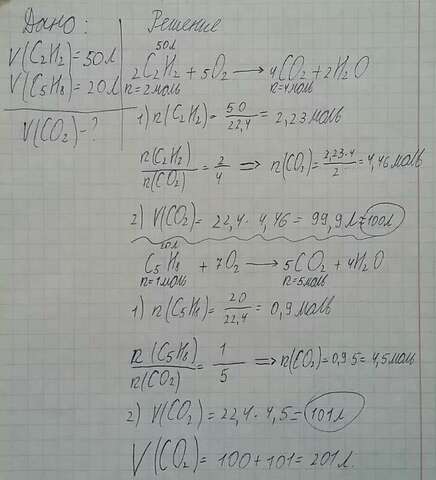 Дано:
V(C₂H₂)=50л
V(C₅H₈)=20л
V(CO₂)-?
Решение
50л
2C₂H₂ + 5O₂ ⟶ 4CO₂ + 2H₂O
n=2моль n=4моль
1) n(C₂H₂)= 50/22,4 = 2,23моль
n(C₂H₂)/n(CO₂) = 2/4 ⟹ n(CO₂)= 2,23·4/2 = 4,46моль
2) V(CO₂)= 22,4 · 4,46 = 99,9л≈100л
20л
C₅H₈ + 7O₂ ⟶ 5CO₂ + 4H₂O
n=1моль n=5моль
1) n(C₅H₈)= 20/22,4 = 0,9моль
n(C₅H₈)/n(CO₂) = 1/5 ⟹ n(CO₂)=0,9·5=4,5моль
2) V(CO₂)=22,4·4,5=101л
V(CO₂)= 100+101=201л.